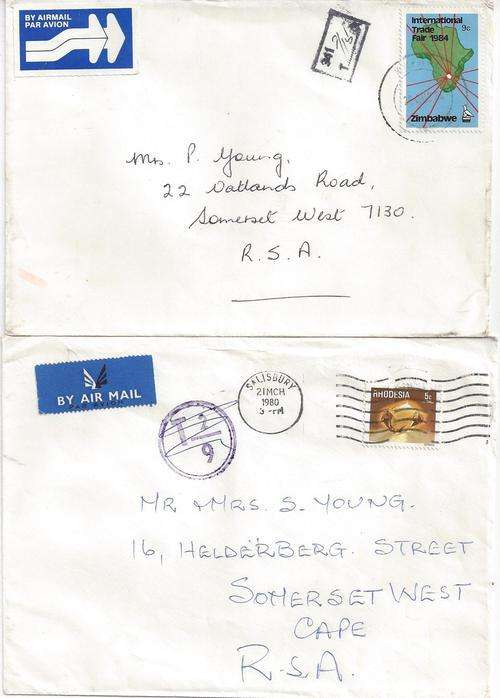 BY AIRMAIL
PAR AVION
341
T
International
Trade
Fair 1984
9c
Zimbabwe
Mrs. P. Young,
22 Oatlands Road,
Somerset West 7130.
R.S.A.
BY AIR MAIL
PAR AVION
T 2/9
SALISBURY
21MCH
1980
3-PM
RHODESIA
5c
MR & MRS. S. YOUNG.
16, HELDERBERG. STREET
SOMERSET WEST
CAPE
R.S.A.